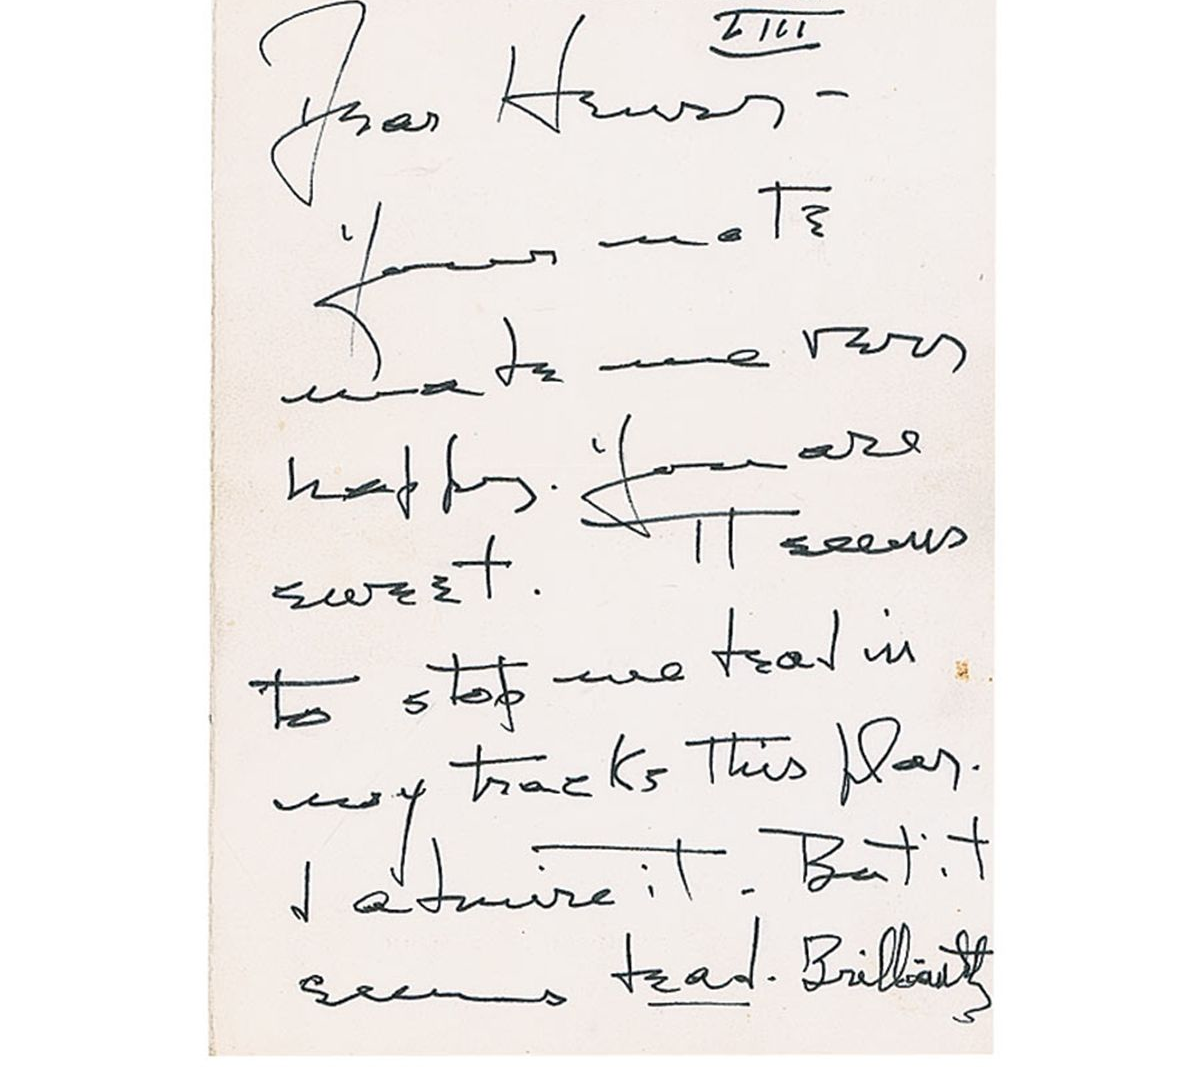 Dear Henry –
Your note
made me very
happy. You are
sweet. It seems
to stop me dead in
my tracks this play.
I admire it. But it
seems dead. Brilliantly